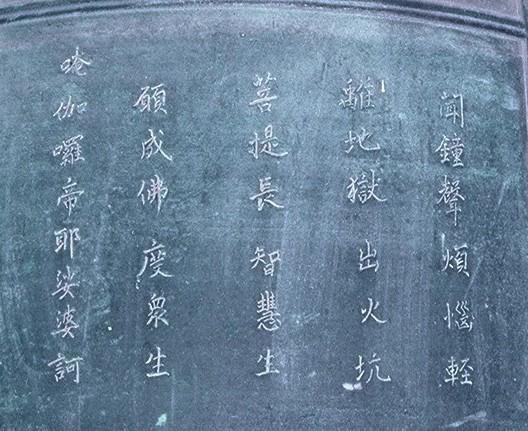 聞鐘聲煩惱輕
離地獄出火坑
菩提長智慧生
願成佛度衆生
唵伽囉帝耶娑婆訶